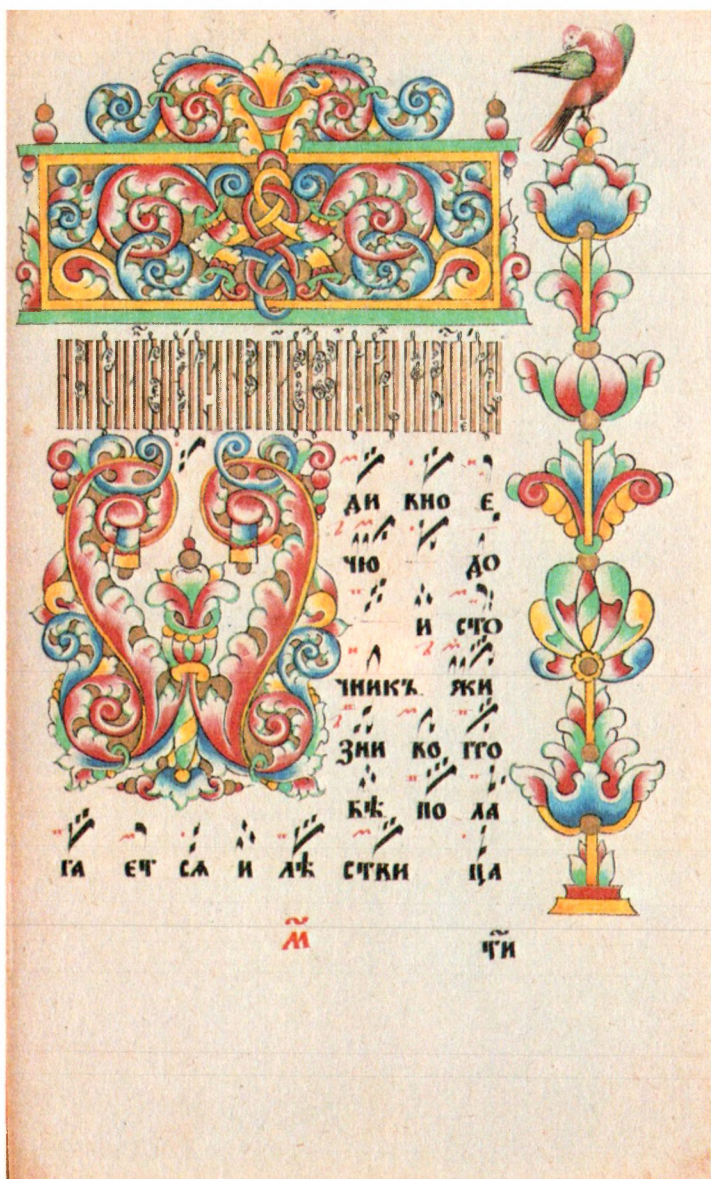 Ѡ ди вно е
чю до
и сто
чникъ жи
зни во гро
бѣ по ла
га ет сѧ и лѣ стви ца
М҃